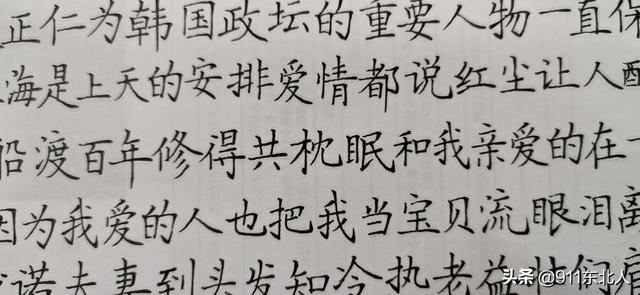 正仁为韩国政坛的重要人物一直保
海是上天的安排爱情都说红尘让人醉
船渡百年修得共枕眠和我亲爱的在一
因为我爱的人也把我当宝贝流眼泪离
诺夫妻到头发知冷执老益
头条@911东北人